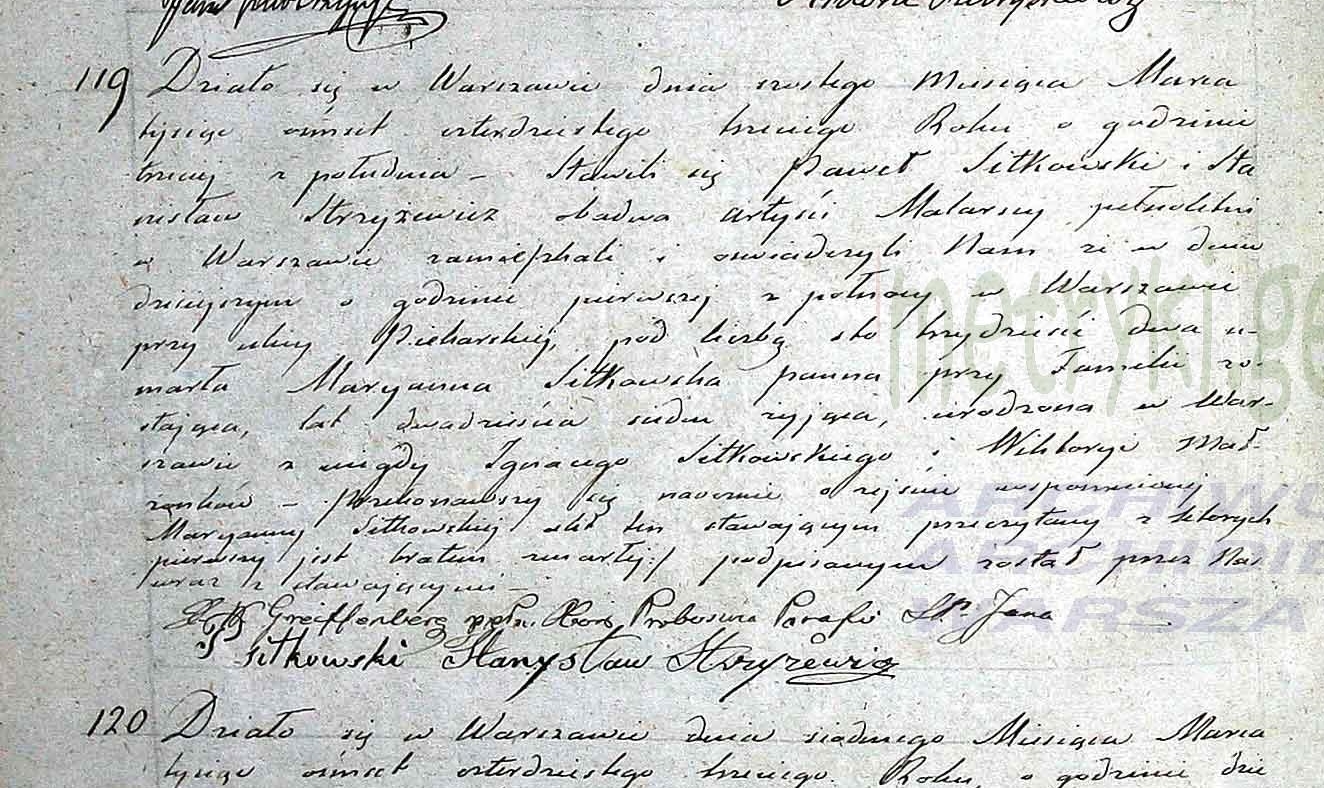 119 Działo się w Warszawie dnia szóstego Miesiąca Marca
tysiąc ośmset czterdziestego trzeciego Roku o godzinie
trzeciej z południa – Stawili się Paweł Sitkowski i Sta
nisław Strzyżewicz obadwa artyści Malarscy pełnoletni
w Warszawie zamieszkali i oświadczyli Nam że w dniu
dzisiejszym o godzinie pierwszej z północy w Warszawie
przy ulicy Piekarskiej, pod liczbą sto trzydzieści dwa u-
marła Maryanna Sitkowska panna przy Familii zo-
stająca, lat dwadzieścia siedm żyjąca, urodzona w War-
szawie z niegdy Ignacego Sitkowskiego i Wiktoryi Mał-
żonków – Przekonawszy się naocznie o zejściu wspomnionej
Maryanny Sitkowskiej akt ten stawającym przeczytany z których
pierwszy jest bratem zmarłej / podpisanym został przez Nas
wraz z stawającymi –
Greiffenberg Proboszcza Parafii Sº Jana
Sitkowski Stanysław Strzyżewicz
120 Działo się w Warszawie dnia siódmego Miesiąca Marca
tysiąc ośmset czterdziestego trzeciego Roku, o godzinie dzie
metryki.ge
ARCHIWU
ARCHIDIE
WARSZA